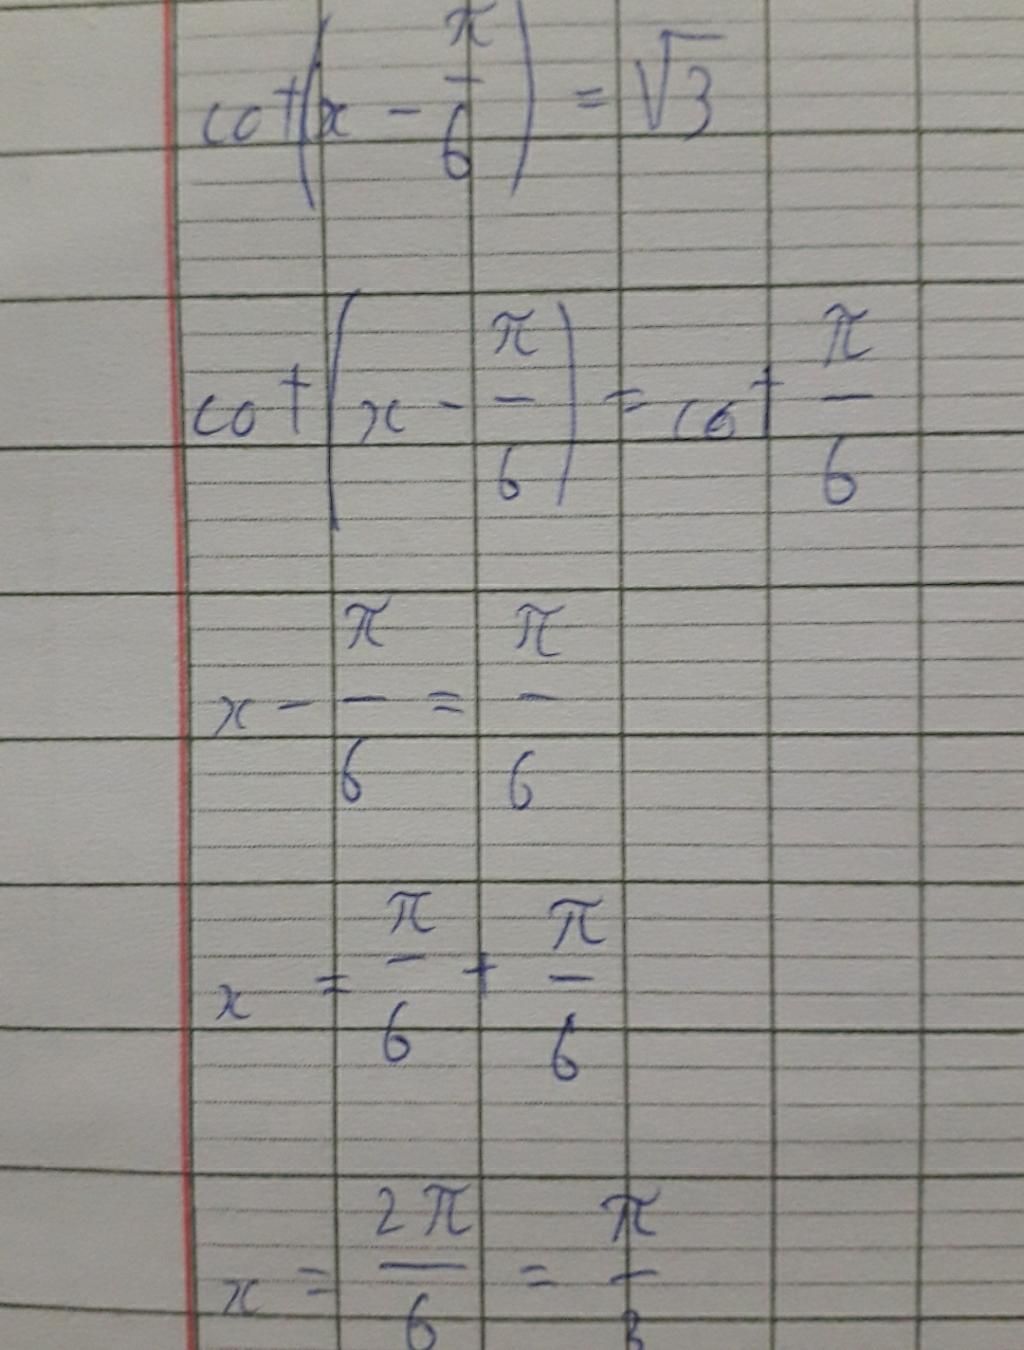 cot(x - π/6) = √3
cot(x - π/6) = cot π/6
x - π/6 = π/6
x = π/6 + π/6
x = 2π/6 = π/3